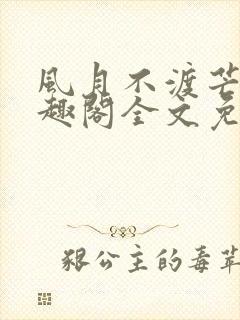 風月不渡芒
趣閣全文免
狠公主的毒蘋